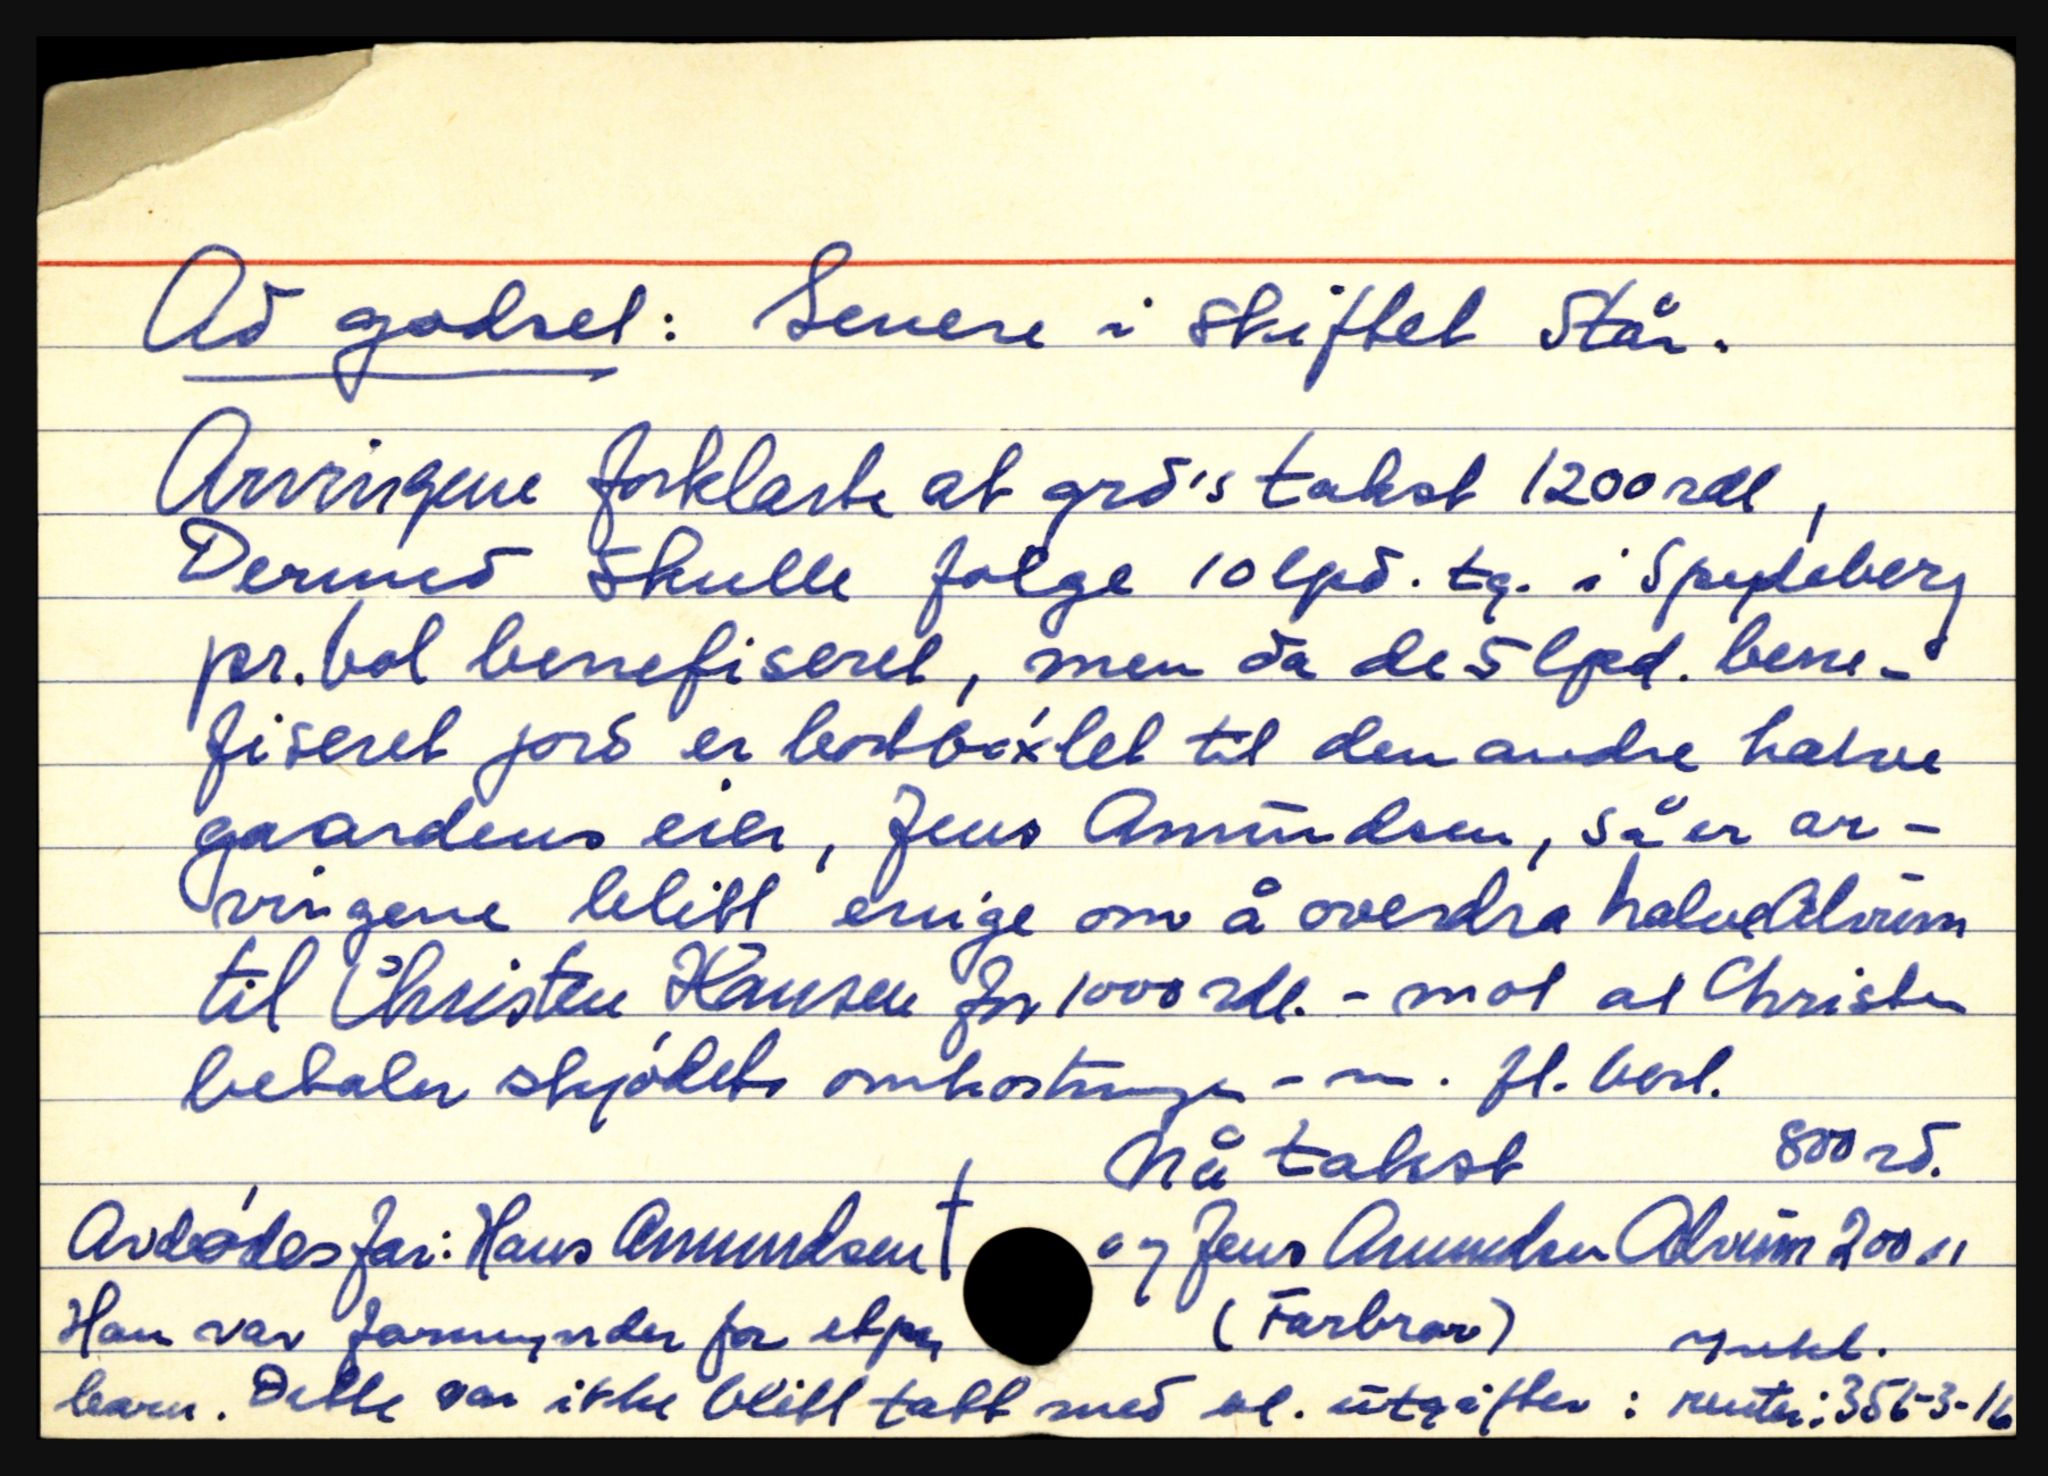 Ad godset: Senere i skiftet står.
Arvingene forklarte at grd's takst 1200 rdl,
Dermed skulle følge 10 lpd. tg. i Spydeberg
pr.bol benefiseret, men da de 5 lpd. bene-
fiseret jord er bortbøxlet til den andre halve
gaardens eier, Jens Amundsen, så er ar-
vingene blitt enige om å overdra halve Alvim
til Christen Hansen for 1000 rdl. - mot at Christen
betaler skjødets omkostninger - m. fl. best.
Nå takst 800 rd.
Avdødes far: Hans Amundsen †
og Jens Amundsen Alvim 200 "
Han var formynder for
(Farbror) inkl.
barn. Dette var ikke blitt tatt med utgifter : renter: 356-3-16